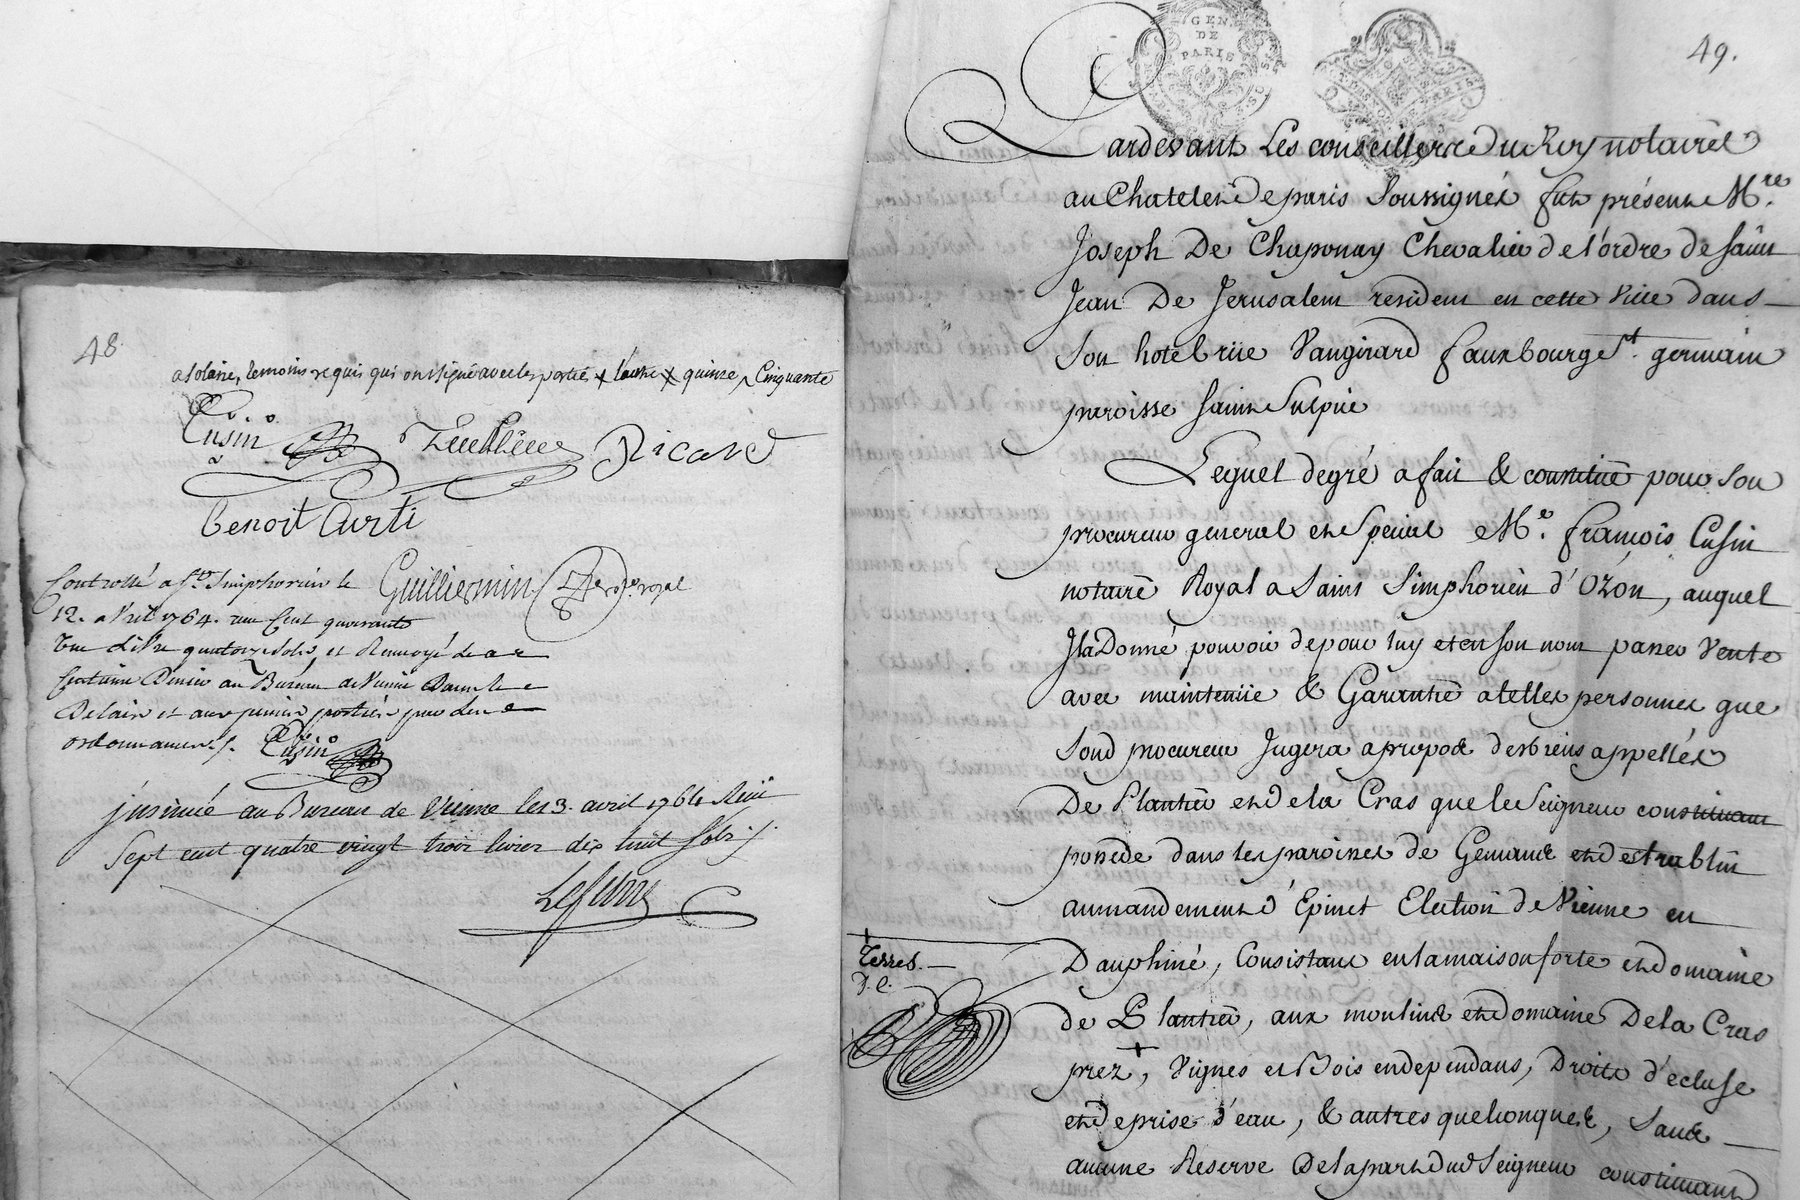 48
a Solaize, temoins requis qui ont signé avec les parties + l'autre + quinze, Cinquante
Cusin
Picard
Benoit Curti
Controllé a St. Simphorien le
Guilliermin
royal
12. avril 1764. au feut quarante
une livre quatorze sols, et Renvoyé de ce
Centieme Denier au Bureau de Vienne Dans le
Delais et aux peines portées par les
ordonnances. Cusin
jnsinué au Bureau de Vienne le 13. avril 1764 Reçu
Sept cent quatre vingt trois livres dix huit sols
GEN.
DE
PARIS
49.
Pardevant Les conseillers du Roy notaires
au Chatelet de paris Soussignés fut présent M.re
Joseph De Chaponay Chevalier de l'ordre de Saint
Jean De Jerusalem resident en cette ville dans
Son hotel rüe Vaugirard fauxbourg St. germain
paroisse Saint Sulpice
Lequel de gré a fait & constitué pour Son
procureur general et Special Me. françois Cusin
notaire Royal a Saint Simphorien d'Ozon, auquel
Jl a Donné pouvoir de pour luy et en Son nom passer vente
avec maintenüe & Garantie a telles personnes que
Sond procureur Jugera a propos des biens appellés
De Plantier et de la Cras que le Seigneur constituant
possede dans les paroisses de Gemans et d'estrablin
au mandement d'Epinet Election de Vienne en
Dauphiné, Consistant en la maison forte et domaine
Terres.
de Plantier, aux moulins et domaine De la Cras
prez, + Vignes et Bois en dependans, Droits d'ecluse
et de prise d'eau, & autres quelconques, Sans
aucune Reserve De la part dud Seigneur constituant